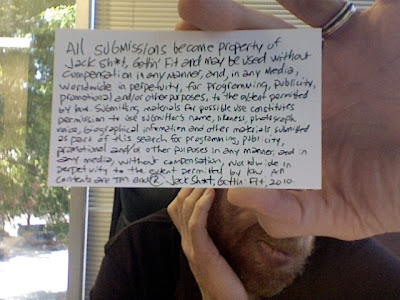 All submissions become property of
Jack Sh*t, Gettin' Fit and may be used without
compensation in any manner, and, in any media,
worldwide in perpetuity, for programming, publicity,
promotional and/or other purposes, to the extent permitted
by law. Submitting materials for possible use constitutes
permission to use submittor's name, likeness, photograph,
voice, biographical information and other materials submitted
as part of this search for programming, publicity,
promotional and/or other purposes in any manner, and in
any media, without compensation, worldwide in
perpetuity to the extent permitted by law. All
contents are TM and ® Jack Sh*t, Gettin' Fit, 2010